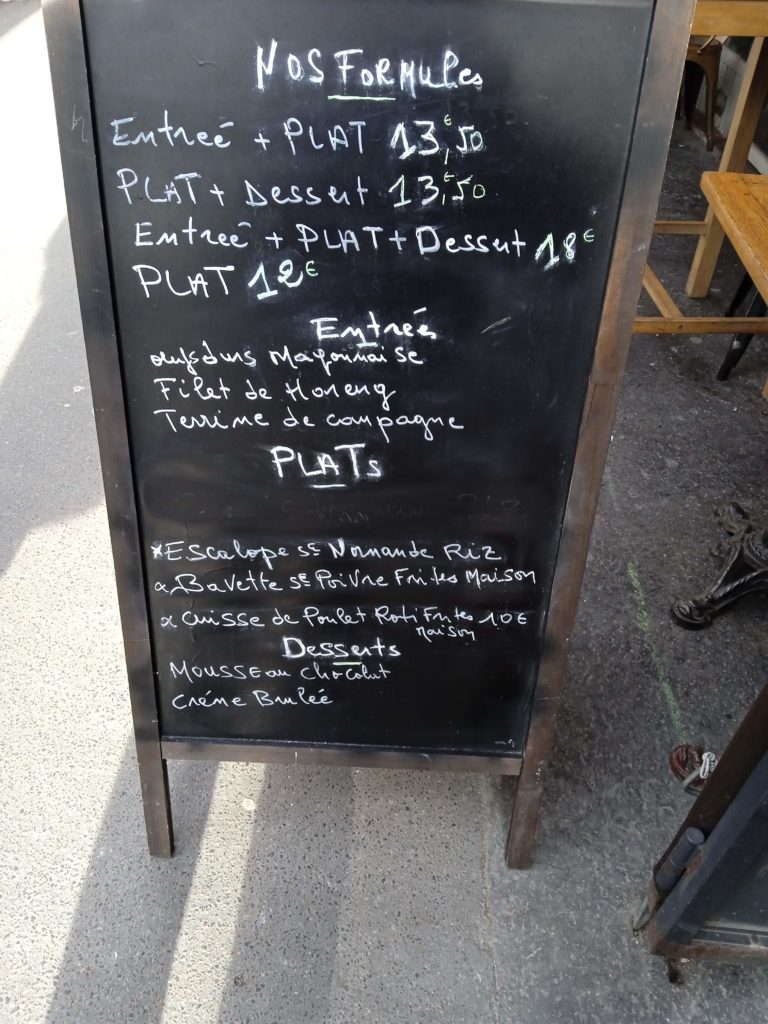 NOS FORMULES
Entreé + PLAT 13,€50
PLAT + Dessert 13,€50
Entreé + PLAT + Dessert 18€
PLAT 12€
Entreés
oeufs durs Mayonnaise
Filet de Horeng
Terrine de campagne
PLATS
*Escalope sce Normande Riz
* Bavette sce Poivre Frites Maison
* Cuisse de Poulet Roti Frites 10€
Maison
Desserts
MOUSSE au Chocolat
Créme Bruléé